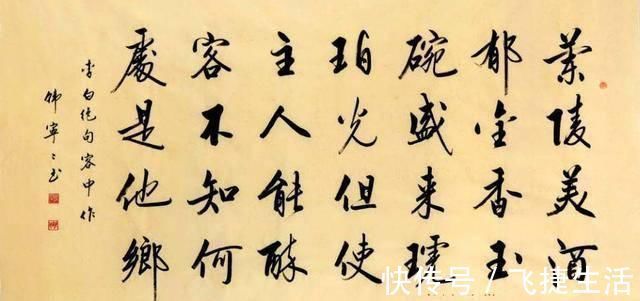 蘭陵美酒
郁金香玉
碗盛来琥
珀光但使
主人能醉
客不知何
處是他鄉
李白绝句客中作
韩寧〻书
快传号/飞捷生活